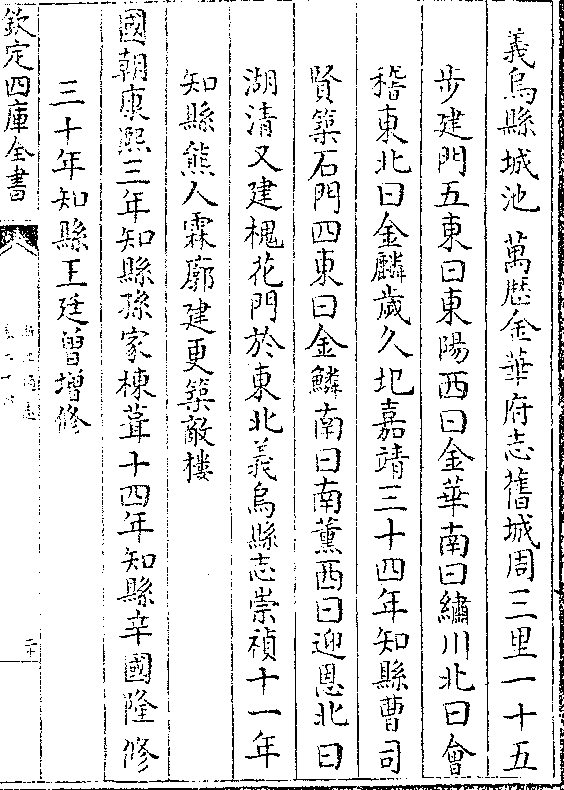 義烏縣城池 萬歴金華府志舊城周三里一十五
步建門五東曰東陽西曰金華南曰繡川北曰會
稽東北曰金麟歲久圮嘉靖三十四年知縣曹司
賢築石門四東曰金鱗南曰南薫西曰迎恩北曰
湖清又建槐花門於東北義烏縣志崇禎十一年
知縣熊人霖廓建更築敵樓
國朝康熙三年知縣孫家棟葺十四年知縣辛國隆修
三十年知縣王廷曽增修
欽定四庫全書
二十